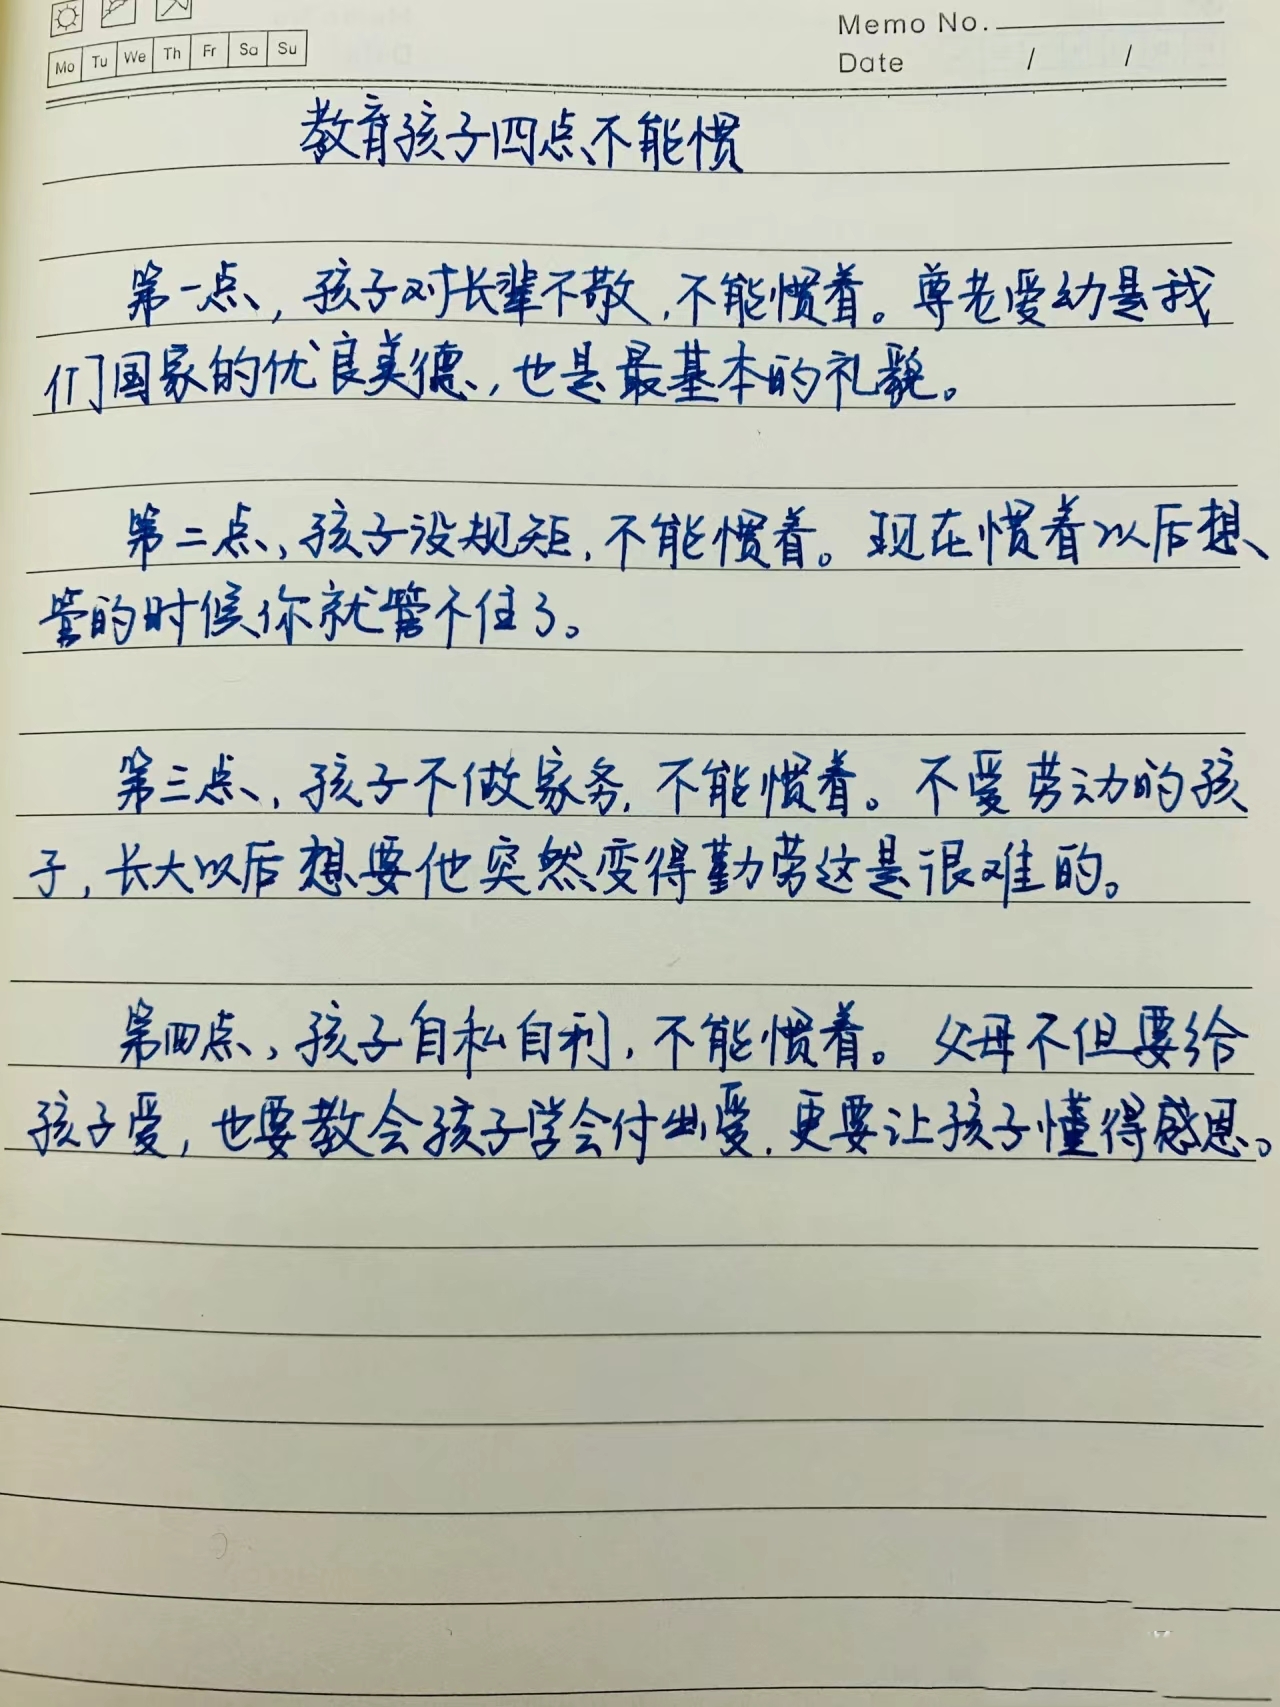 Memo No.
Mo Tu We Th Fr Sa Su
Date / /
教育孩子四点不能惯
第一点，孩子对长辈不敬，不能惯着。尊老爱幼是我
们国家的优良美德，也是最基本的礼貌。
第二点，孩子没规矩，不能惯着。现在惯着以后想
管的时候你就管不住了。
第三点，孩子不做家务，不能惯着。不爱劳动的孩
子，长大以后想要他突然变得勤劳这是很难的。
第四点，孩子自私自利，不能惯着。父母不但要给
孩子爱，也要教会孩子学会付出爱，更要让孩子懂得感恩。